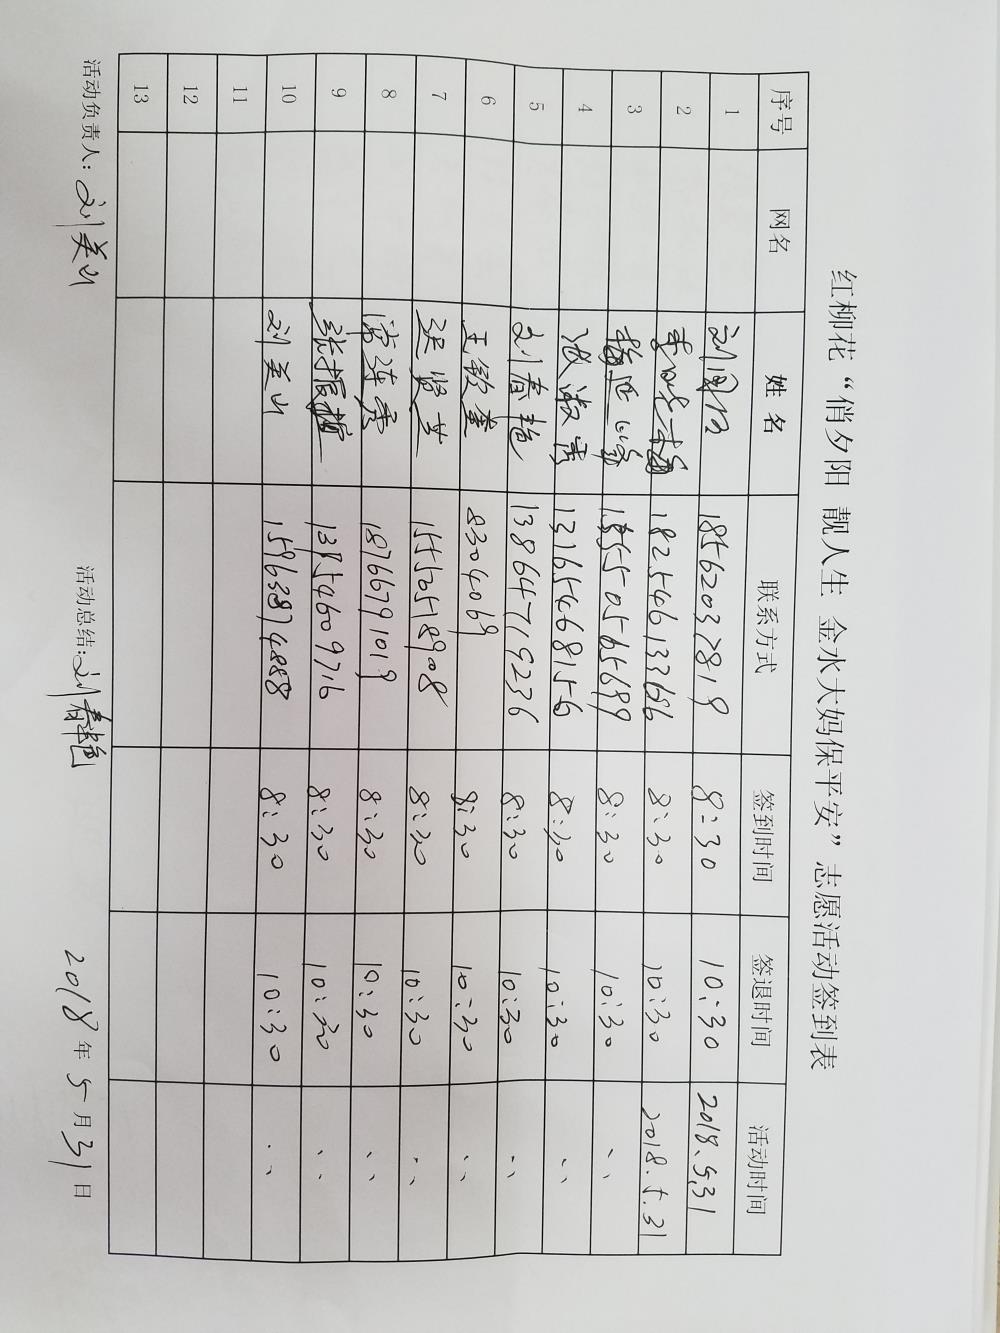 红柳花“俏夕阳 靓人生 金水大妈保平安”志愿活动签到表
序号 网名 姓名 联系方式 签到时间 签退时间 活动时间
1 18562037819 8:30 10:30 2018.5.31
2 18254613366 8:30 10:30 2018.5.31
3 8:30 10:30 、、
4 13165468156 8:30 10:30 、、
5 刘春艳 138647719236 8:30 10:30 、、
6 王钦奎 8304069 8:30 10:30 、、
7 15525158908 8:30 10:30 、、
8 18766791019 8:30 10:30 、、
9 张振 8:30 10:30 、、
10 刘美山 8:30 10:30 、、
11
12
13
活动负责人: 刘美山 活动总结: 刘春艳 2018年5月31日